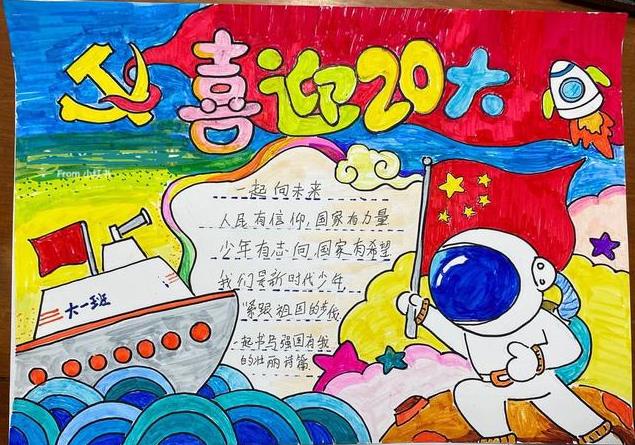 喜迎20大
From 小红书
一起向未来
人民有信仰,国家有力量
少年有志向,国家有希望
我们是新时代少年,
紧跟祖国的步伐
一起书写强国有我
的壮丽诗篇.
大一班